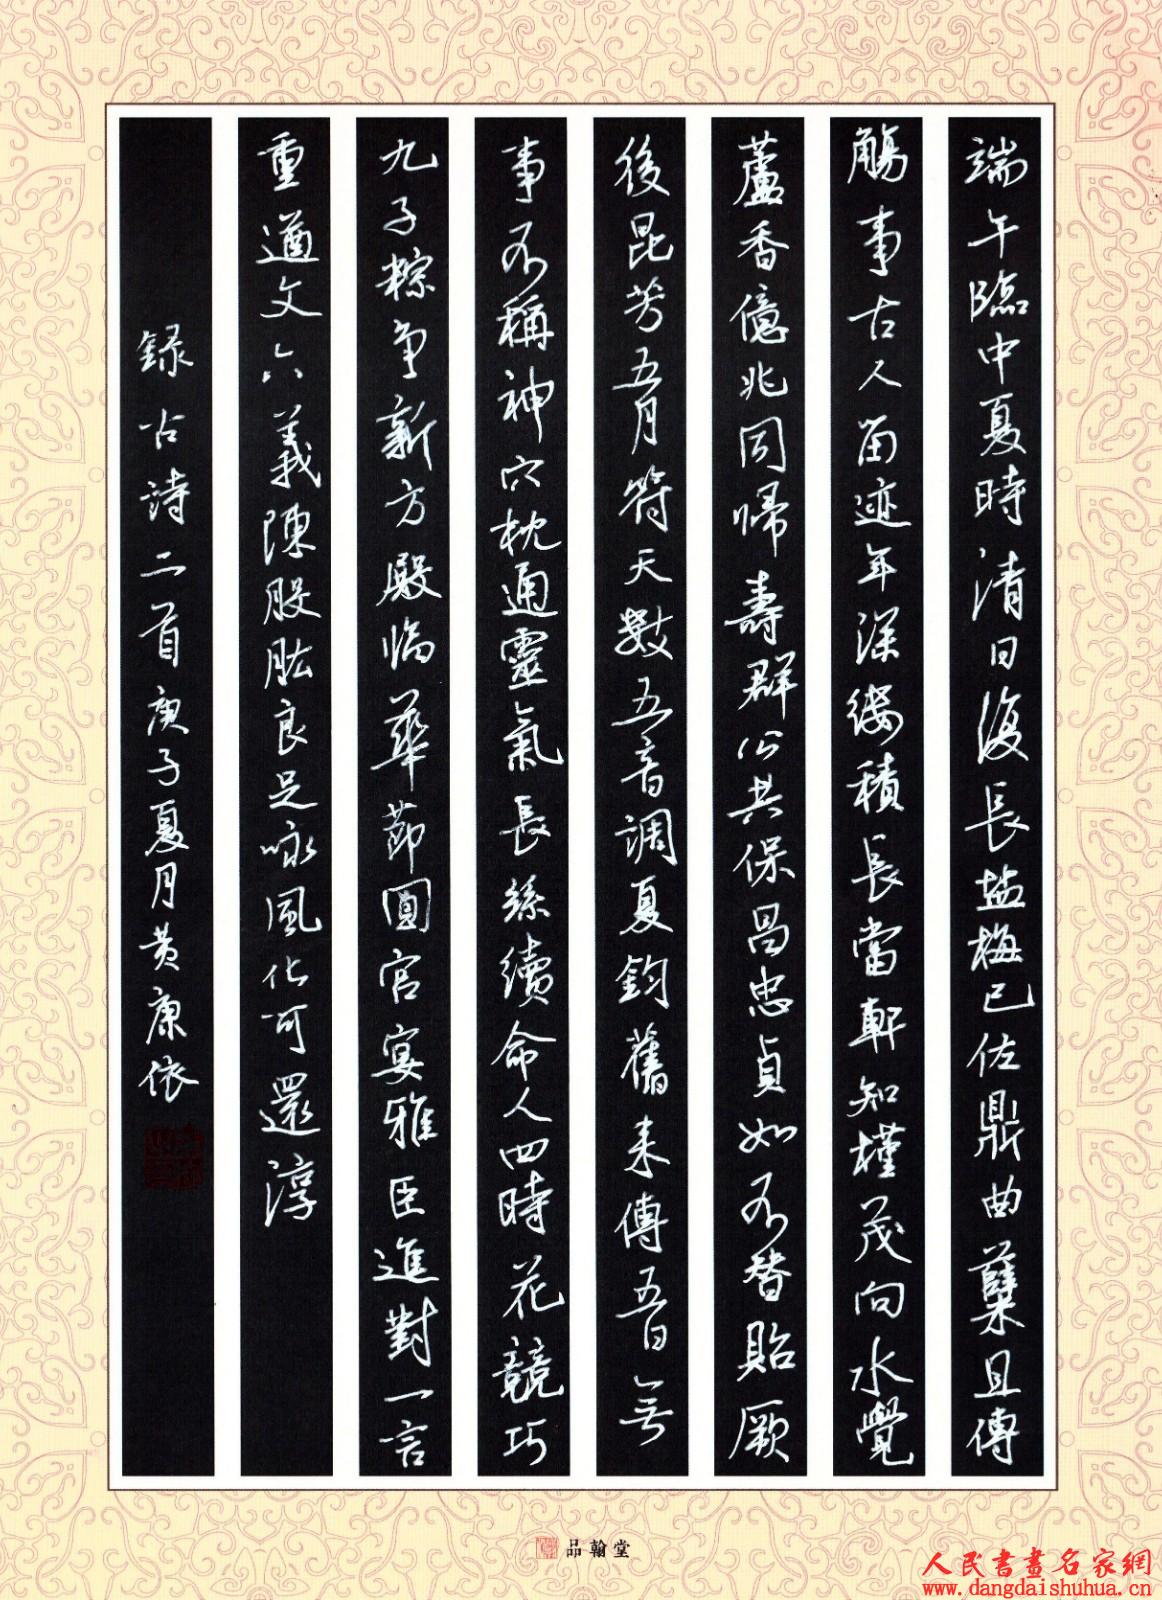 端午臨中夏時清日復長盐梅已佐鼎曲糵且傳
觴事古人留迹年深縷積長當軒知槿茂向水覺
蘆香億兆同歸壽群公共保昌忠貞如不替貽厥
後昆芳五月符天數五音調夏鈞舊来傳五日無
事不稱神穴枕通靈氣長絲續命人四時花競巧
九子粽爭新方殿臨華節圓宫宴雅臣進對一言
重遒文六義陳股肱良足咏風化可還淳
録古詩二首庚子夏月黄康依
品翰堂
人民書畫名家網
www.dangdaishuhua.cn